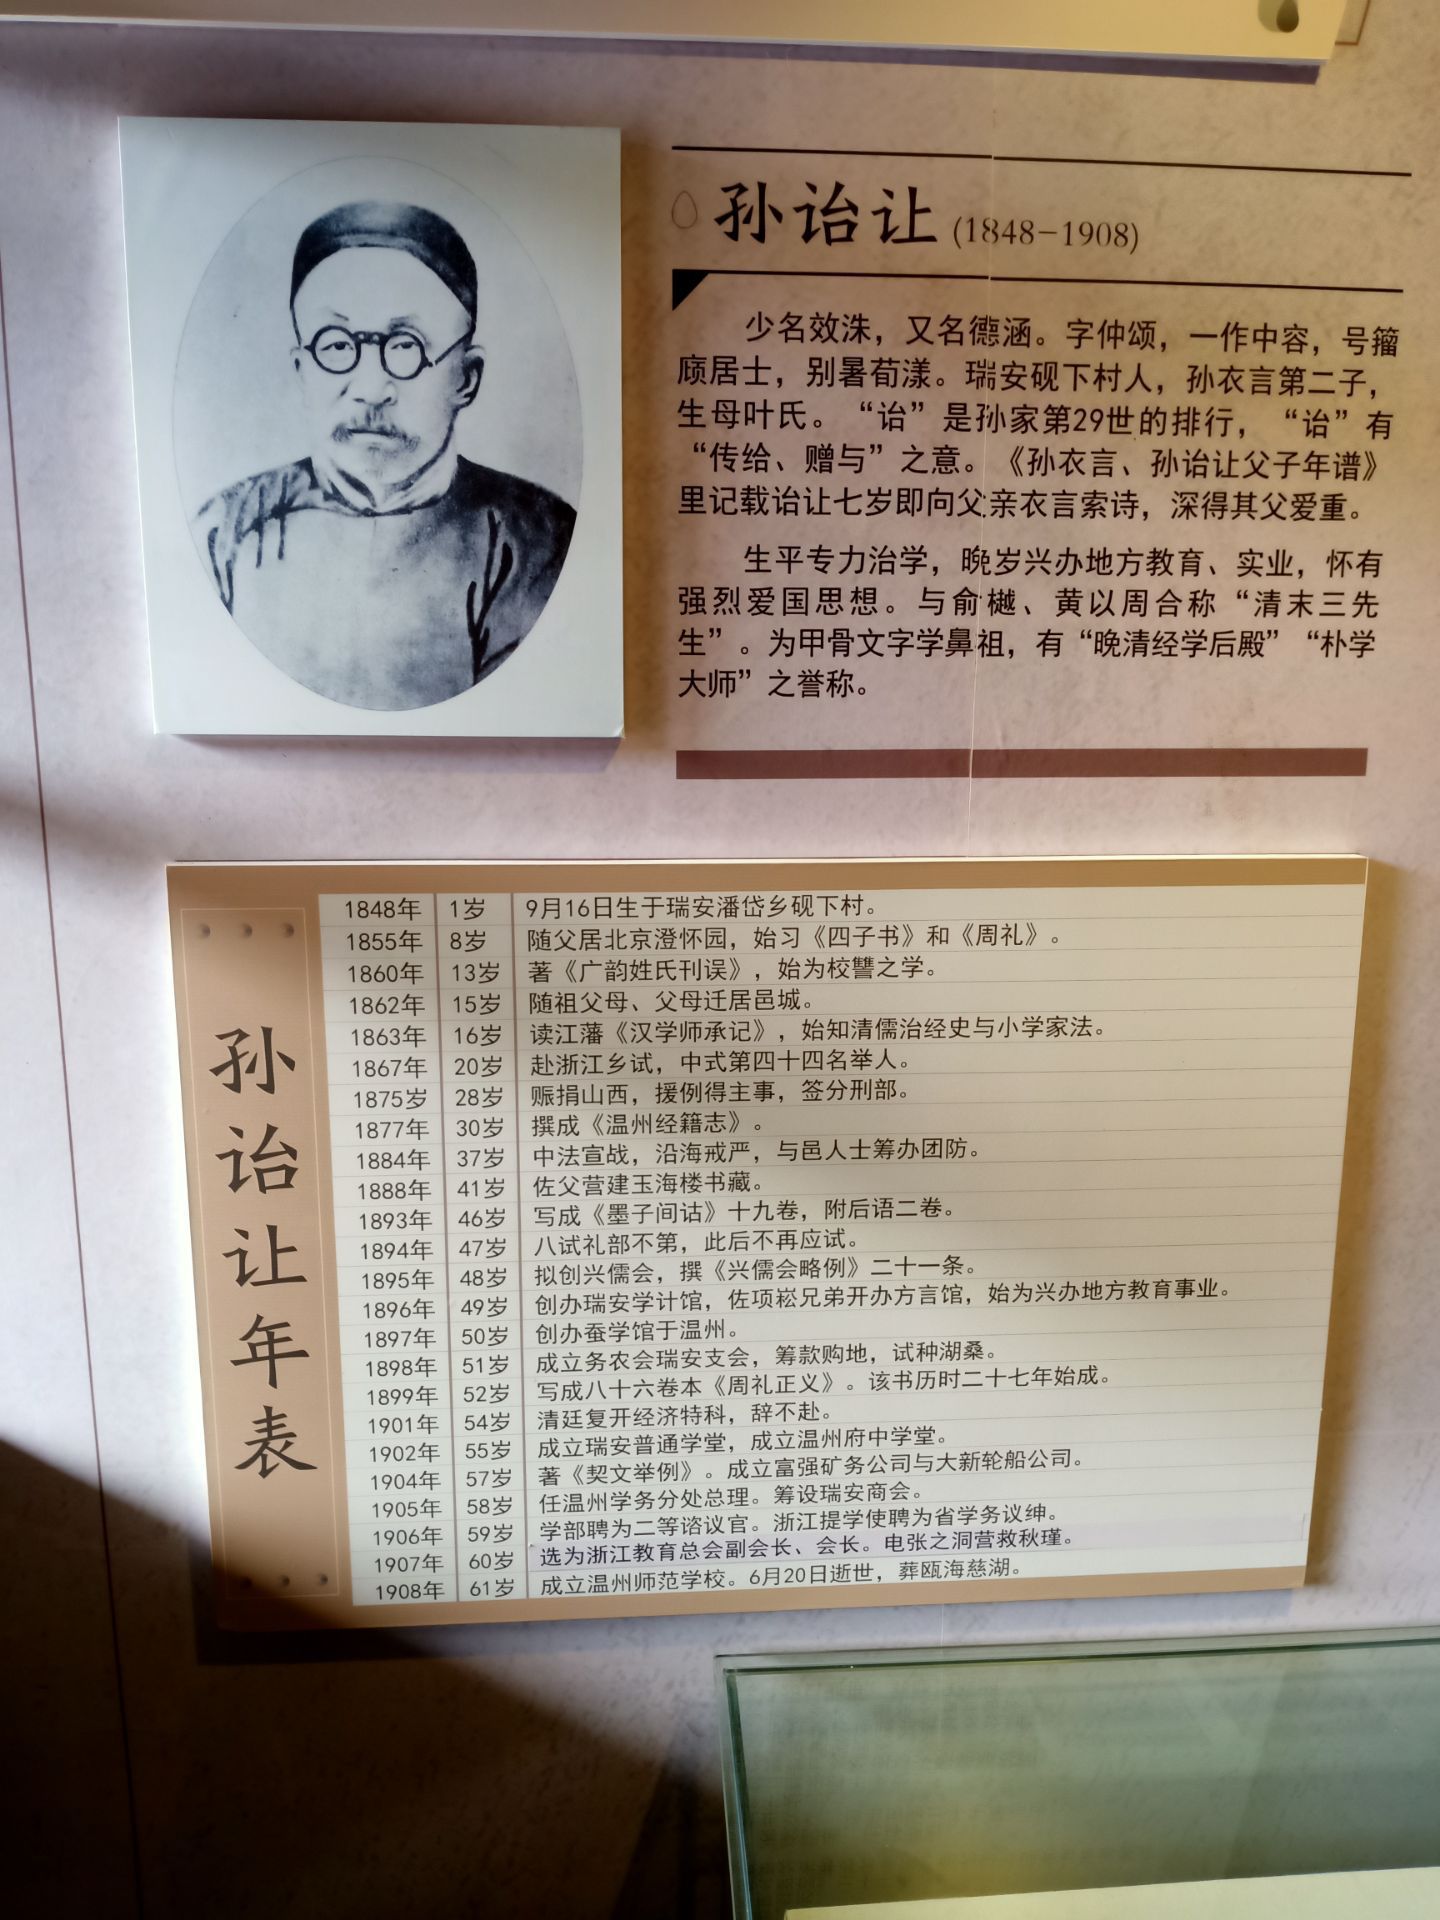 孙诒让 (1848-1908)
少名效洙，又名德涵。字仲颂，一作中容，号籀
庼居士，别署荀漾。瑞安砚下村人，孙衣言第二子，
生母叶氏。“诒”是孙家第29世的排行，“诒”有
“传给、赠与”之意。《孙衣言、孙诒让父子年谱》
里记载诒让七岁即向父亲衣言索诗，深得其父爱重。
生平专力治学，晚岁兴办地方教育、实业，怀有
强烈爱国思想。与俞樾、黄以周合称“清末三先
生”。为甲骨文字学鼻祖，有“晚清经学后殿”“朴学
大师”之誉称。
孙诒让年表
1848年 1岁 9月16日生于瑞安潘岱乡砚下村。
1855年 8岁 随父居北京澄怀园，始习《四子书》和《周礼》。
1860年 13岁 著《广韵姓氏刊误》，始为校讐之学。
1862年 15岁 随祖父母、父母迁居邑城。
1863年 16岁 读江藩《汉学师承记》，始知清儒治经史与小学家法。
1867年 20岁 赴浙江乡试，中式第四十四名举人。
1875岁 28岁 赈捐山西，援例得主事，签分刑部。
1877年 30岁 撰成《温州经籍志》。
1884年 37岁 中法宣战，沿海戒严，与邑人士筹办团防。
1888年 41岁 佐父营建玉海楼书藏。
1893年 46岁 写成《墨子间诂》十九卷，附后语二卷。
1894年 47岁 八试礼部不第，此后不再应试。
1895年 48岁 拟创兴儒会，撰《兴儒会略例》二十一条。
1896年 49岁 创办瑞安学计馆，佐项崧兄弟开办方言馆，始为兴办地方教育事业。
1897年 50岁 创办蚕学馆于温州。
1898年 51岁 成立务农会瑞安支会，筹款购地，试种湖桑。
1899年 52岁 写成八十六卷本《周礼正义》。该书历时二十七年始成。
1901年 54岁 清廷复开经济特科，辞不赴。
1902年 55岁 成立瑞安普通学堂，成立温州府中学堂。
1904年 57岁 著《契文举例》。成立富强矿务公司与大新轮船公司。
1905年 58岁 任温州学务分处总理。筹设瑞安商会。
1906年 59岁 学部聘为二等谘议官。浙江提学使聘为省学务议绅。
1907年 60岁 选为浙江教育总会副会长、会长。电张之洞营救秋瑾。
1908年 61岁 成立温州师范学校。6月20日逝世，葬瓯海慈湖。